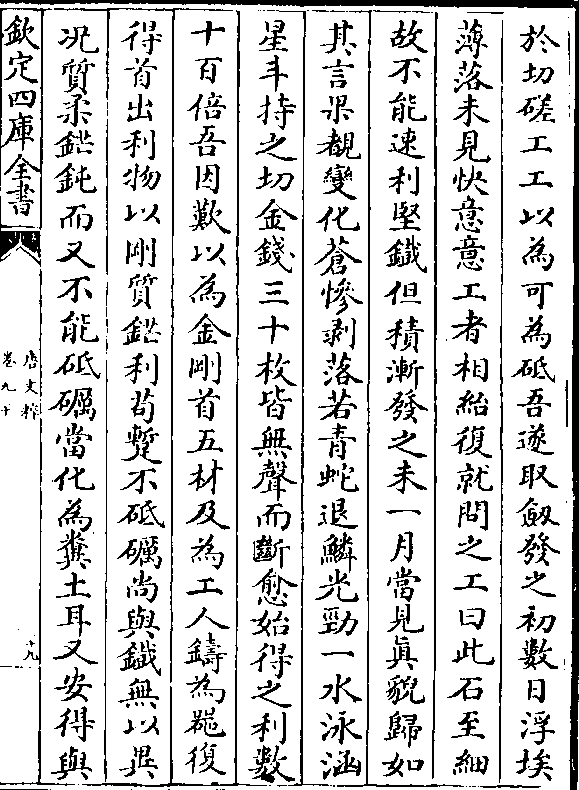 於切磋工工以為可為砥吾遂取劔發之初數日浮埃
薄落未見快意意工者相紿復就問之工曰此石至細
故不能速利堅鐵但積漸發之未一月當見真貌歸如
其言果覩變化蒼慘剥落若青蛇退鱗光勁一水泳涵
星斗持之切金錢三十枚皆無聲而斷愈始得之利數
十百倍吾因歎以為金剛首五材及為工人鑄為器復
得首出利物以剛質鋩利苟蹔不砥礪尚與鐵無以異
况質柔鋩鈍而又不能砥礪當化為糞土耳又安得與
欽定四庫全書
唐文粹
卷九十
十九